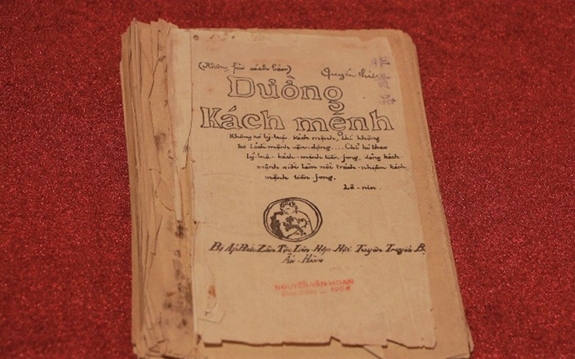 (Không fải sách bán) Quyển thứ
Đường
Kách mệnh
Không có lý luận kách mệnh, thì không
có kách mệnh vận động.... Chỉ có theo
lý luận kách mệnh tiền fong, đảng kách
mệnh mới làm nổi trách nhiệm kách
mệnh tiền fong.
Lê-nin.
Bị Áp Bức Zân Tộc Liên Hợp Hội Tuyên Truyền Bộ
Ấn Hành
NGUYỄN VĂN HOAN